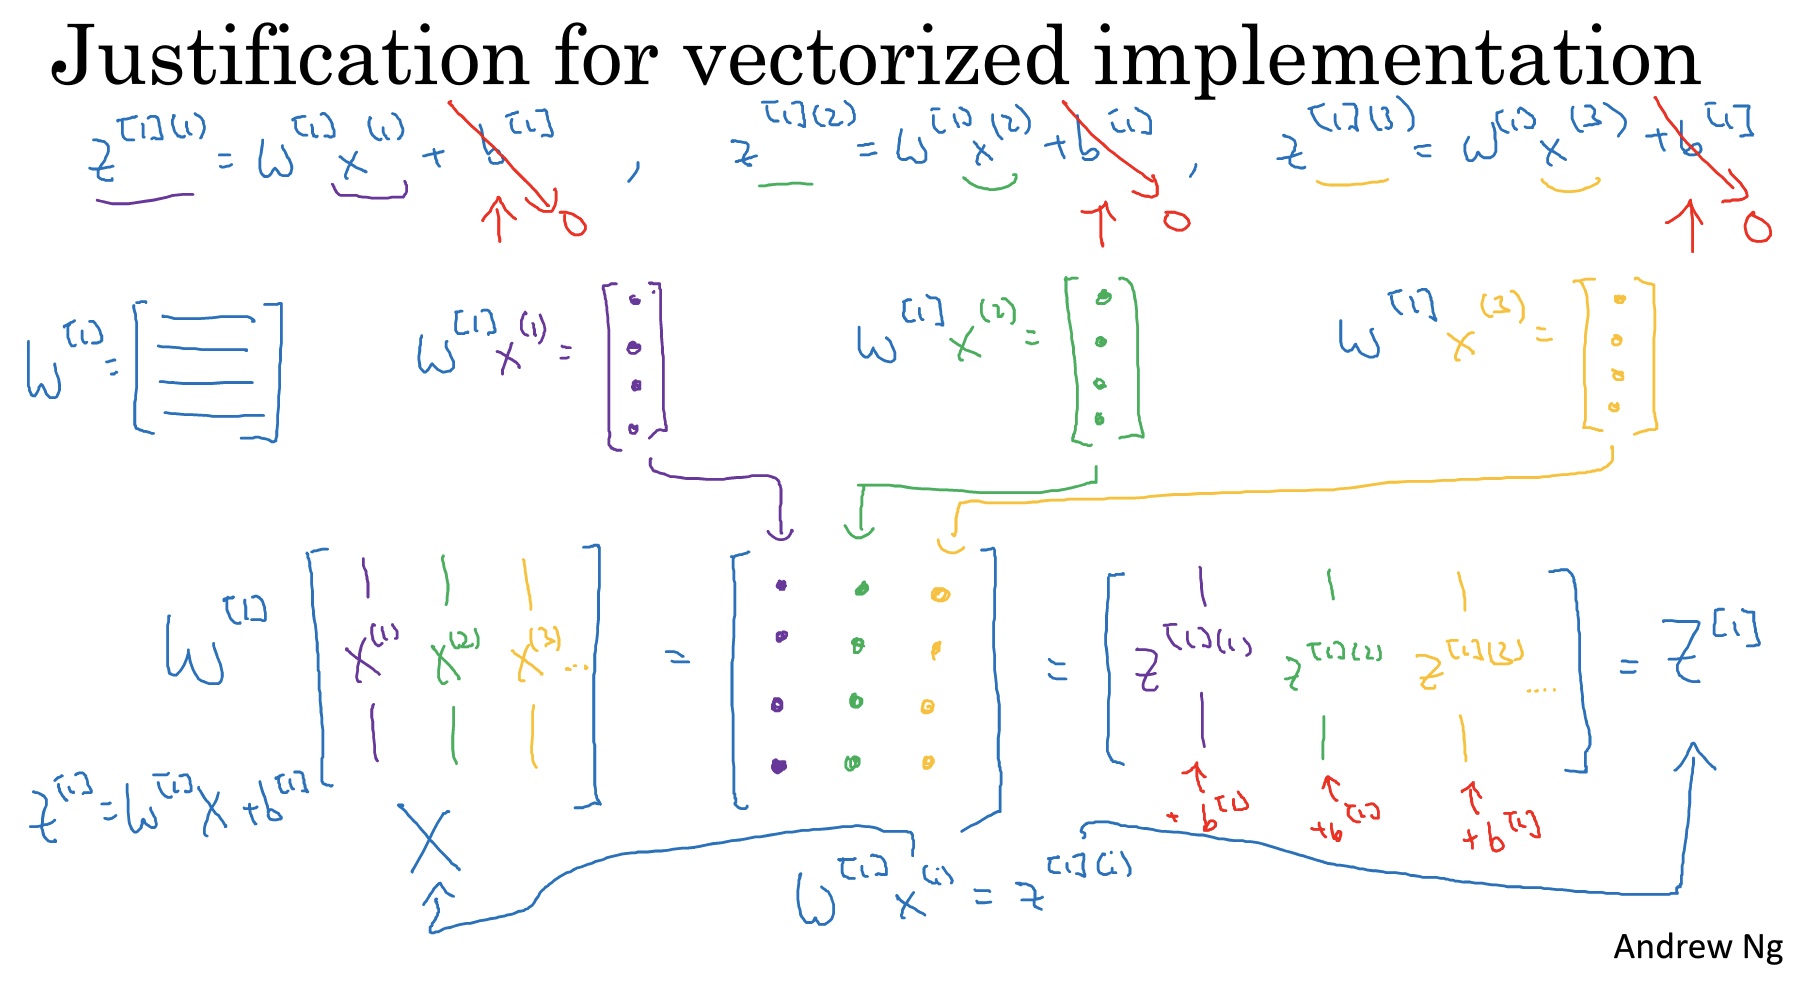 Justification for vectorized implementation
z^[1](1) = W^[1] x^(1) + b^[1] , z^[1](2) = W^[1] x^(2) + b^[1] , z^[1](3) = W^[1] x^(3) + b^[1]
0 0 0
W^[1] = W^[1] x^(1) = W^[1] x^(2) = W^[1] x^(3) =
W^[1] [ x^(1) x^(2) x^(3) ... ] = = [ z^[1](1) z^[1](2) z^[1](3) .... ] = Z^[1]
+ b^[1] + b^[1] + b^[1]
Z^[1] = W^[1] X + b^[1]
X
W^[1] x^(i) = z^[1](i)
Andrew Ng